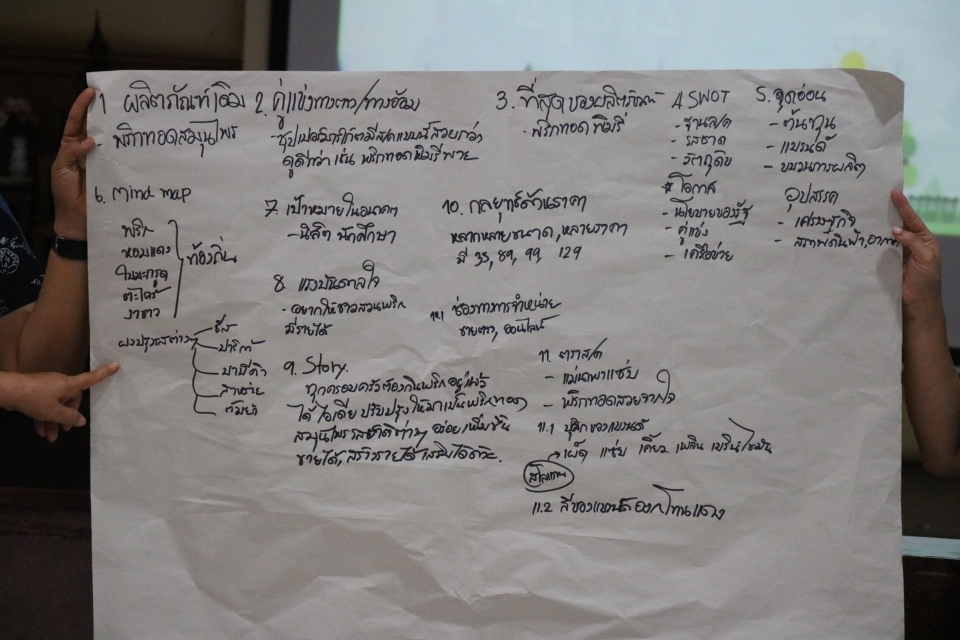 1 ผลิตภัณฑ์เดิม
- พริกทอดสมุนไพร
2. คู่แข่งทางตรง/ทางอ้อม
ดูดีกว่า เช่น พริกทอดพิมรี่พาย
3. ที่สุดของผลิตภัณฑ์
- พริกทอดพิมรี่
4 SWOT
- รสชาด
- วัตถุดิบ
* โอกาส
- นโยบายของรัฐ
- คู่แข่ง
- เครือข่าย
5. จุดอ่อน
- ต้นทุน
- แบรนด์
- ขบวนการผลิต
อุปสรรค
- เศรษฐกิจ
- สภาพดินฟ้า,อากาศ
6. Mind map
พริก
หอมแดง
ใบมะกรูด
ตะไคร้
งาขาว
ท้องถิ่น
ผงปรุงรสต่างๆ
ชีส
ปาปริก้า
บาบีคิว
สาหร่าย
ต้มยำ
7. เป้าหมายในอนาคต
- นิสิต นักศึกษา
8. แรงบันดาลใจ
- อยากให้ชาวสวนพริก
มีรายได้
9. Story.
ทุกครอบครัวต้องกินพริกอยู่แล้ว
ได้ไอเดียปรับปรุงให้มาเป็นพริกทอด
สมุนไพร รสชาติต่างๆ อร่อยเพิ่มขึ้น
ขายได้, สร้างรายได้
10. กลยุทธ์ด้านราคา
หลากหลายขนาด, หลายราคา
มี 35, 89, 99, 129
10.1 ช่องทางการจำหน่าย
ขายตรง, ออนไลน์
11. ตราสินค้า
- แม่นภาแซ่บ
- พริกทอดสวยจากใจ
11.1 บุคลิกของแบรนด์
→ เผ็ด แซ่บ เคี้ยวเพลิน
สโลแกน
11.2 สีของแบรนด์ต้องโทนแดง